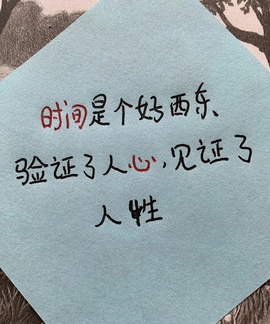 时间是个好西东、
验证了人心,见证了
人性